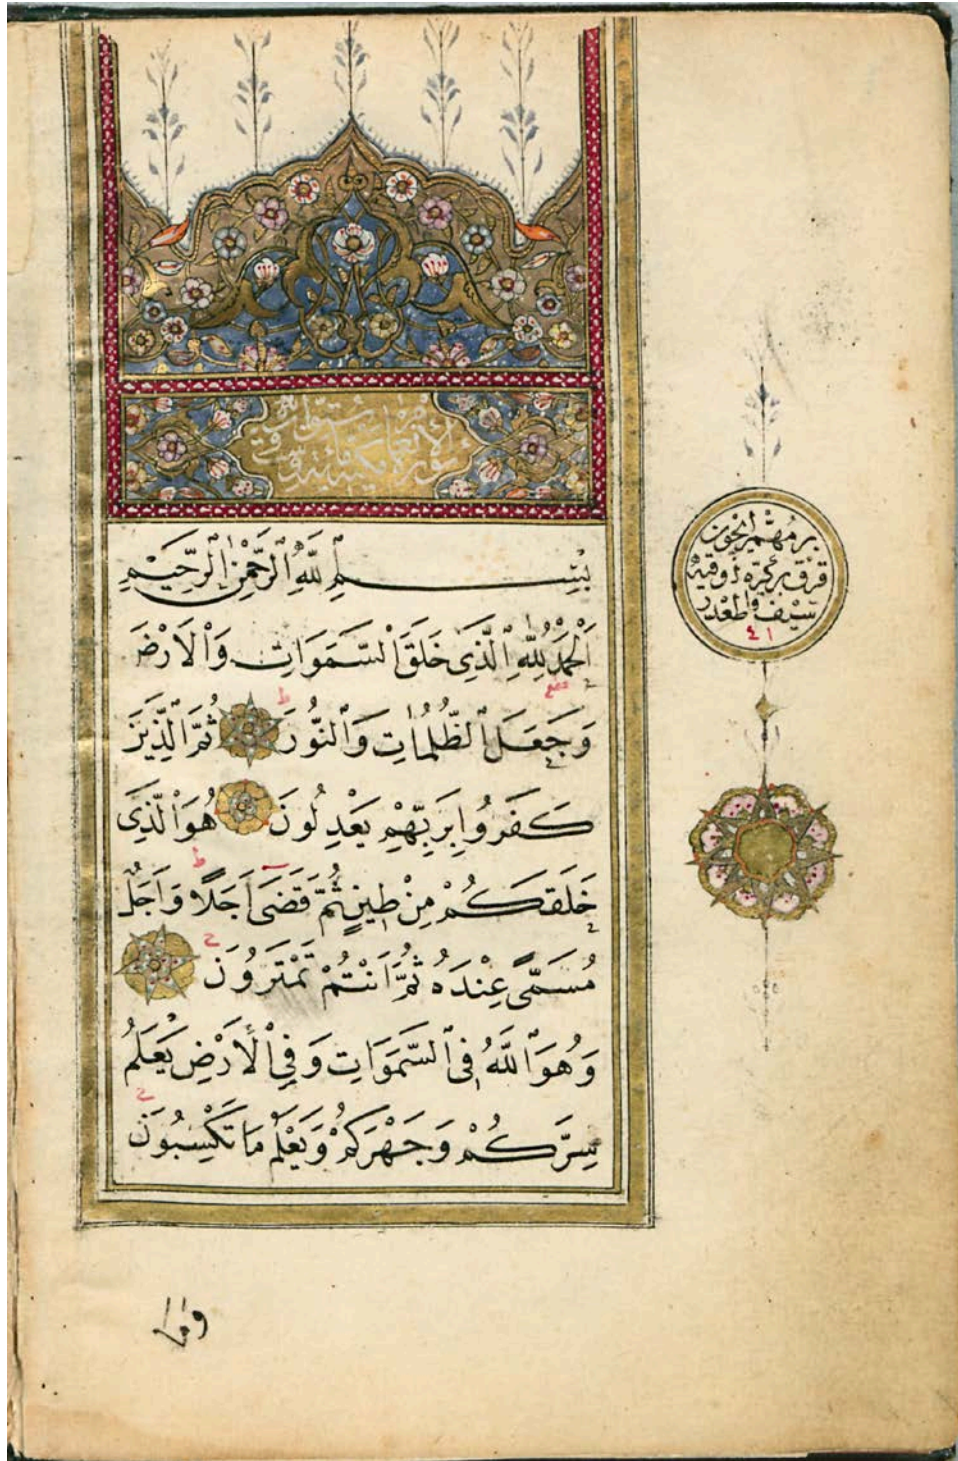 سورة الأنعام مكية
بِسْمِ ٱللَّهِ ٱلرَّحْمٰنِ ٱلرَّحِيمِ
اَلْحَمْدُ لِلّٰهِ ٱلَّذِى خَلَقَ ٱلسَّمٰوَاتِ وَٱلْاَرْضَ
وَجَعَلَ ٱلظُّلُمَاتِ وَٱلنُّورَ ثُمَّ ٱلَّذِينَ
كَفَرُوا بِرَبِّهِمْ يَعْدِلُونَ هُوَ ٱلَّذِى
خَلَقَكُمْ مِنْ طِينٍ ثُمَّ قَضَى اَجَلًا وَاَجَلٌ
مُسَمًّى عِنْدَهُ ثُمَّ اَنْتُمْ تَمْتَرُونَ
وَهُوَ ٱللَّهُ فِى ٱلسَّمٰوَاتِ وَفِى ٱلْاَرْضِ يَعْلَمُ
سِرَّكُمْ وَجَهْرَكُمْ وَيَعْلَمُ مَا تَكْسِبُونَ
بر مهم ايچون
قرق بر كره اوقيه
٤١
وما